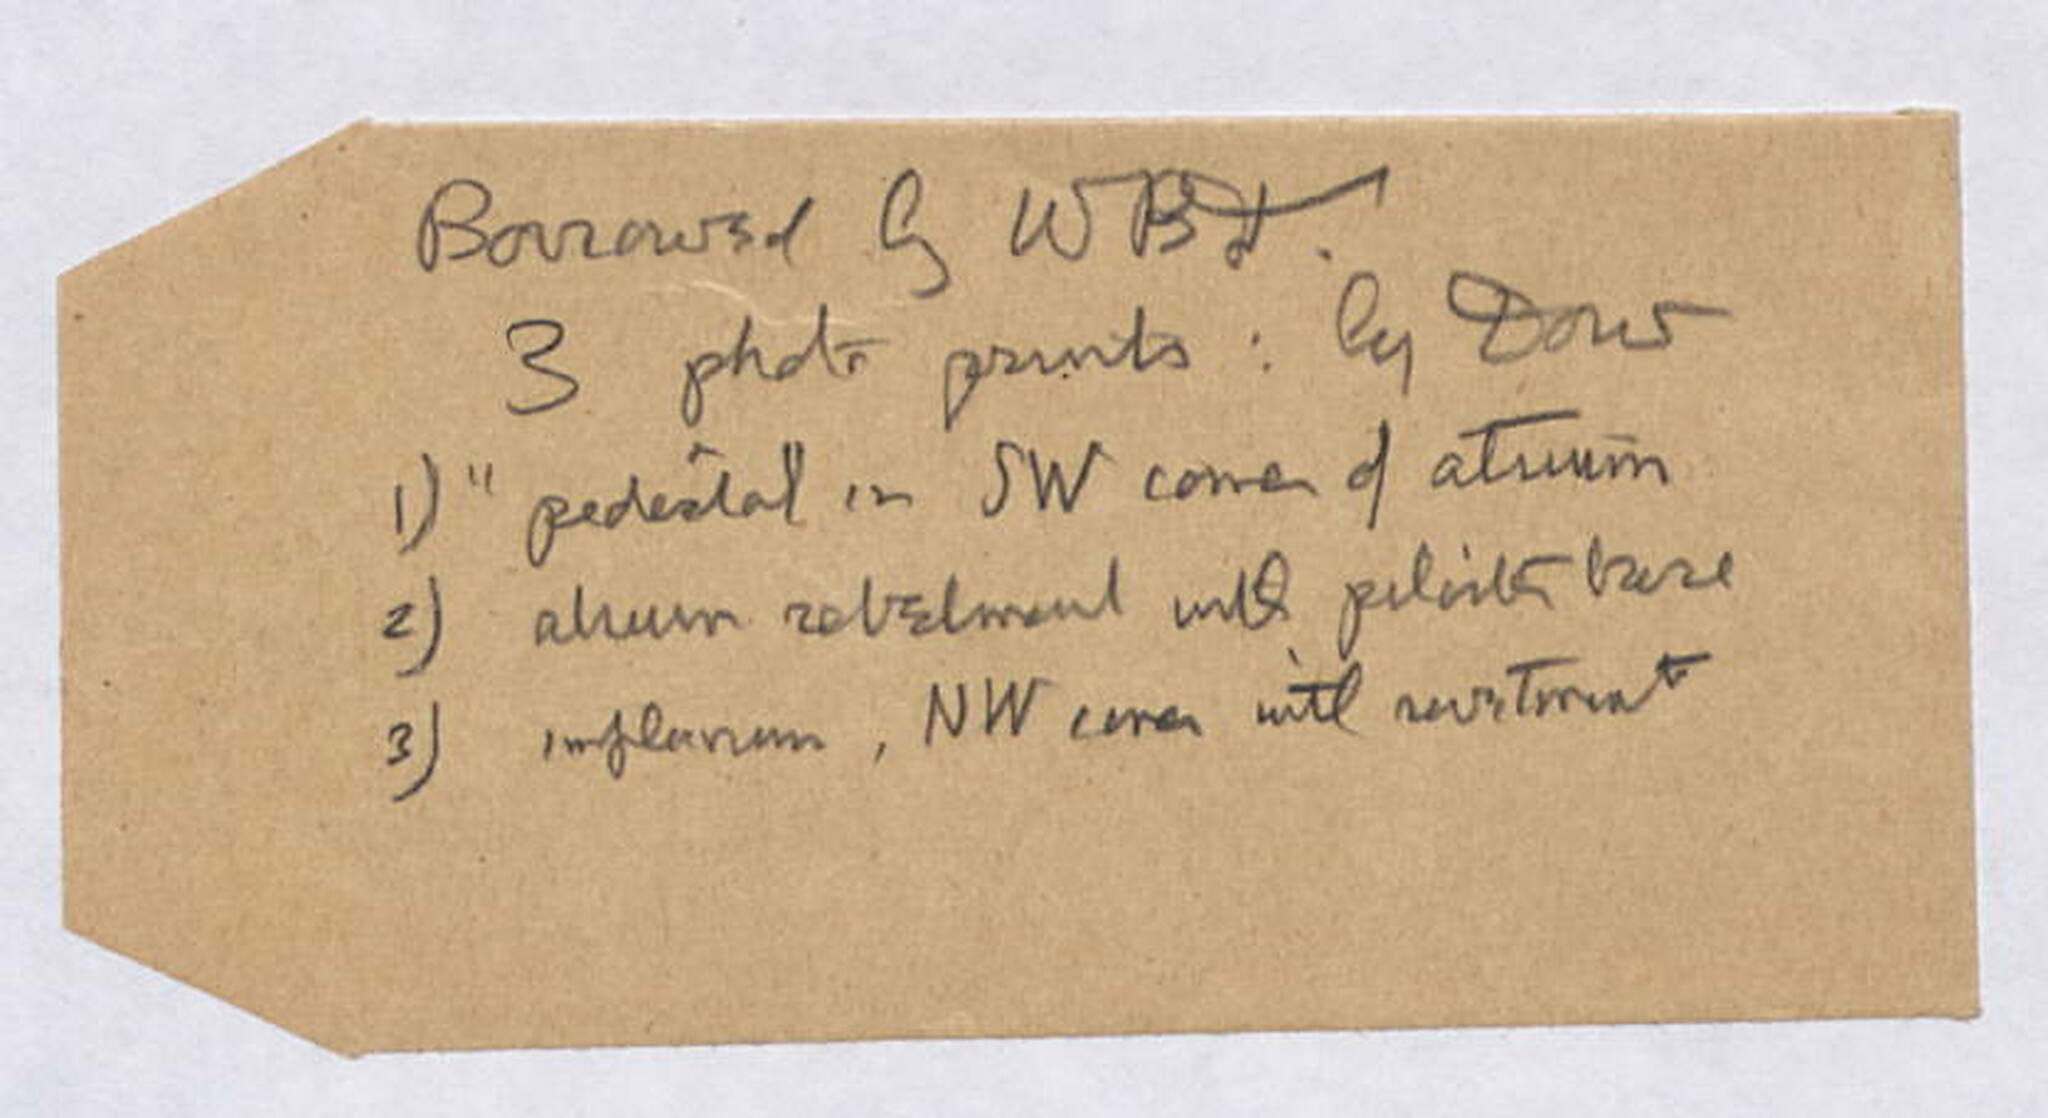 Borrowed by WBD.
3 photo prints : by Dow
1) "pedestal" in SW corner of atrium
2) atrium revetment with pilaster base
3) impluvium, NW corner with revetment